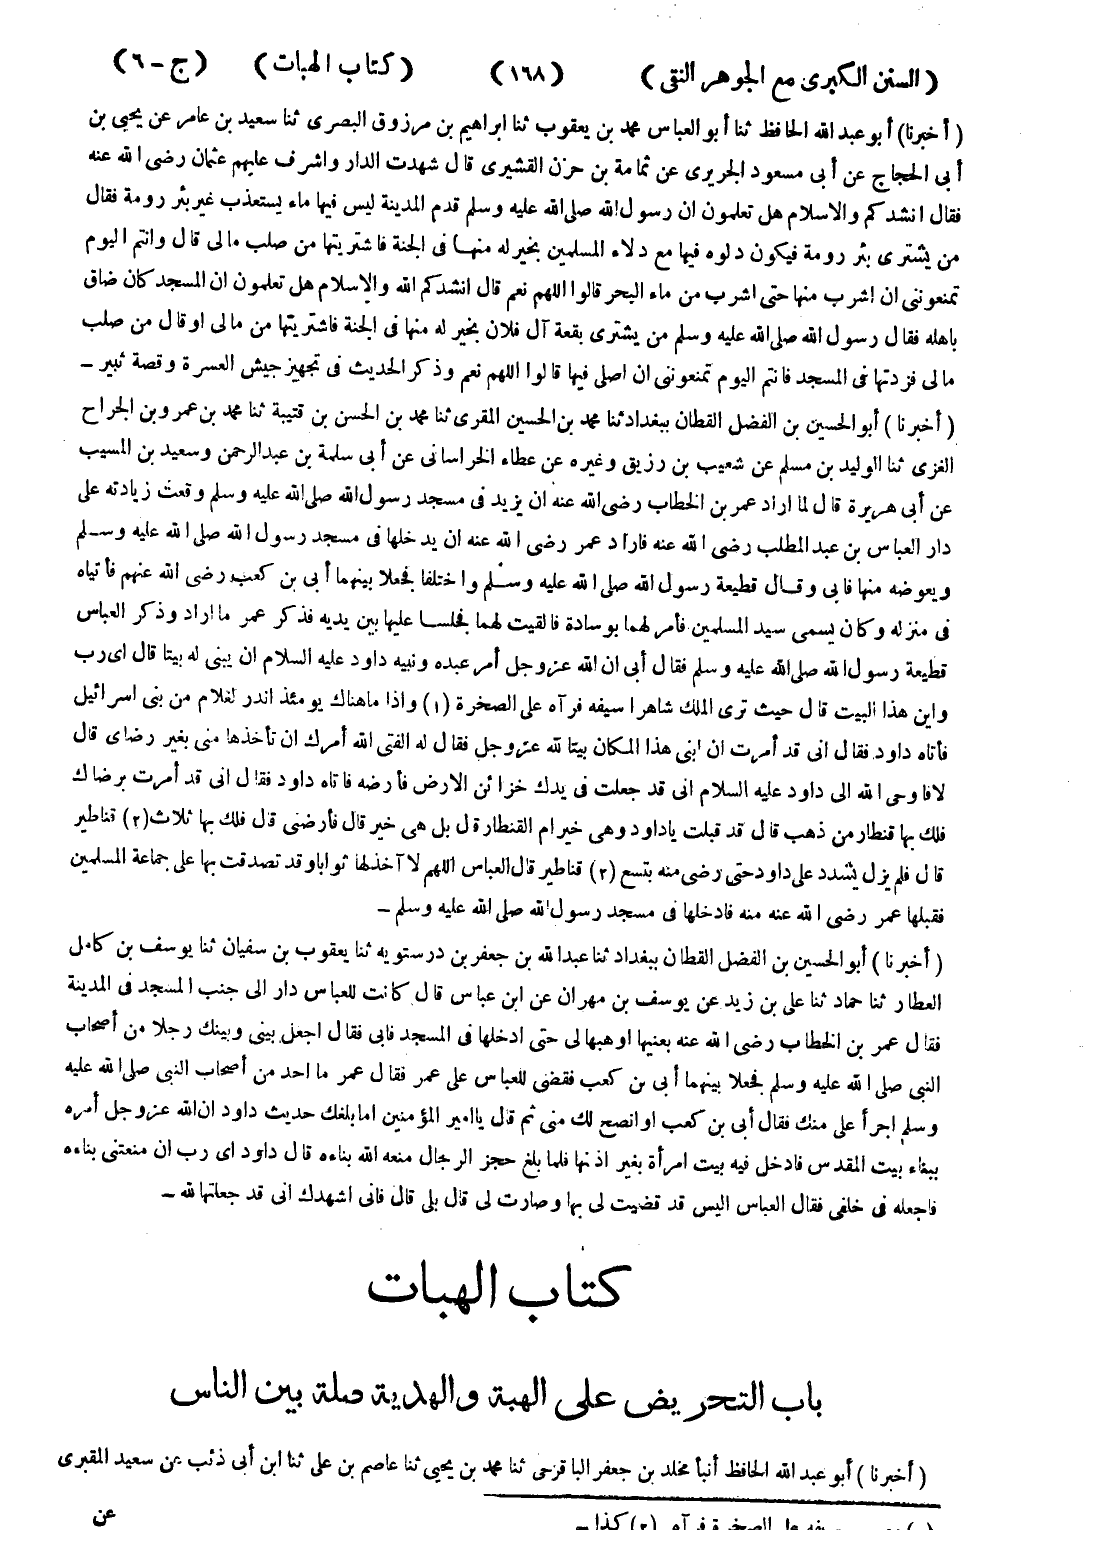 (السنن الكبرى مع الجوهر النقى) (١٦٨) (كتاب الهبات) (ج-٦)
(أخبرنا) أبو عبد الله الحافظ ثنا أبو العباس محمد بن يعقوب ثنا ابراهيم بن مرزوق البصرى ثنا سعيد بن عامر عن يحيى بن
أبى الحجاج عن أبى مسعود الجريرى عن ثمامة بن حزن القشيرى قال شهدت الدار واشرف عليهم عثمان رضى الله عنه
فقال انشدكم والاسلام هل تعلمون ان رسول الله صلى الله عليه وسلم قدم المدينة ليس فيها ماء يستعذب غير بئر رومة فقال
من يشترى بئر رومة فيكون دلوه فيها مع دلاء المسلمين بخير له منها فى الجنة فاشتريتها من صلب مالى قال وانتم اليوم
تمنعوننى ان اشرب منها حتى اشرب من ماء البحر قالوا اللهم نعم قال انشدكم الله والاسلام هل تعلمون ان المسجد كان ضاق
باهله فقال رسول الله صلى الله عليه وسلم من يشترى بقعة آل فلان بخير له منها فى الجنة فاشتريتها من مالى او قال من صلب
مالى فزدتها فى المسجد فانتم اليوم تمنعوننى ان اصلى فيها قالوا اللهم نعم وذكر الحديث فى تجهيز جيش العسرة وقصة ثبير -
(أخبرنا) أبو الحسين بن الفضل القطان ببغداد ثنا محمد بن الحسين المقرى ثنا محمد بن الحسن بن قتيبة ثنا محمد بن عمرو بن الجراح
الغزى ثنا الوليد بن مسلم عن شعيب بن رزيق وغيره عن عطاء الخراسانى عن أبى سلمة بن عبد الرحمن وسعيد بن المسيب
عن أبى هريرة قال لما اراد عمر بن الخطاب رضى الله عنه ان يزيد فى مسجد رسول الله صلى الله عليه وسلم وقعت زيادته على
دار العباس بن عبد المطلب رضى الله عنه فاراد عمر رضى الله عنه ان يدخلها فى مسجد رسول الله صلى الله عليه وسلم
ويعوضه منها فابى وقال قطيعة رسول الله صلى الله عليه وسلم واختلفا فجعلا بينهما أبى بن كعب رضى الله عنهم فأتياه
فى منزله وكان يسمى سيد المسلمين فأمر لهما بوسادة فالقيت لهما فجلسا عليها بين يديه فذكر عمر ما اراد وذكر العباس
قطيعة رسول الله صلى الله عليه وسلم فقال أبى ان الله عزوجل أمر عبده ونبيه داود عليه السلام ان يبنى له بيتا قال اى رب
واين هذا البيت قال حيث ترى الملك شاهرا سيفه فرآه على الصخرة (١) واذا ماهناك يومئذ اندر لغلام من بنى اسرائيل
فأتاه داود فقال انى قد أمرت ان ابنى هذا المكان بيتا لله عزوجل فقال له الفتى الله أمرك ان تأخذها منى بغير رضاى قال
لافاوحى الله الى داود عليه السلام انى قد جعلت فى يدك خزائن الارض فأرضه فاتاه داود فقال انى قد أمرت برضاك
فلك بها قنطار من ذهب قال قد قبلت ياداود وهى خير ام القنطار قال بل هى خير قال فأرضنى قال فلك بها ثلاث (٢) قناطير
قال فلم يزل يشدد على داود حتى رضى منه بتسع (٢) قناطير قال العباس اللهم لا آخذ لها ثوابا وقد تصدقت بها على جماعة المسلمين
فقبلها عمر رضى الله عنه منه فادخلها فى مسجد رسول الله صلى الله عليه وسلم -
(أخبرنا) أبو الحسين بن الفضل القطان ببغداد ثنا عبد الله بن جعفر بن درستويه ثنا يعقوب بن سفيان ثنا يوسف بن كامل
العطار ثنا حماد ثنا على بن زيد عن يوسف بن مهران عن ابن عباس قال كانت للعباس دار الى جنب المسجد فى المدينة
فقال عمر بن الخطاب رضى الله عنه بعنيها او هبها لى حتى ادخلها فى المسجد فابى فقال اجعل بينى وبينك رجلا من أصحاب
النبى صلى الله عليه وسلم فجعلا بينهما أبى بن كعب فقضى للعباس على عمر فقال عمر ما احد من أصحاب النبى صلى الله عليه
وسلم اجرأ على منك فقال أبى بن كعب او انصح لك منى ثم قال ياامير المؤمنين اما بلغك حديث داود ان الله عزوجل أمره
ببناء بيت المقدس فادخل فيه بيت امرأة بغير اذنها فلما بلغ حجز الرجال منعه الله بناءه قال داود اى رب ان منعتنى بناءه
فاجعله فى خلفى فقال العباس اليس قد قضيت لى بها وصارت لى قال بلى قال فانى اشهدك انى قد جعلتها لله -
كتاب الهبات
باب التحريض على الهبة والهدية صلة بين الناس
(أخبرنا) أبو عبد الله الحافظ أنبأ مخلد بن جعفر الباقرحى ثنا محمد بن يحيى ثنا عاصم بن على ثنا ابن أبى ذئب عن سعيد المقبرى
سيفه على الصخرة فرآه (٢) كذا -
عن